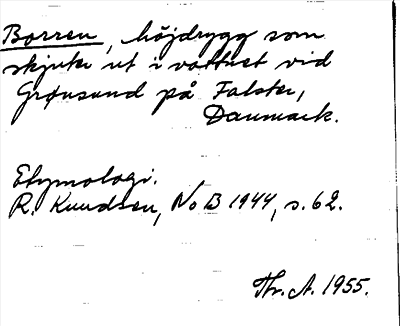 Borren, höjdrygg som
skjuter ut i vattnet vid
Grønsund på Falster,
Danmark.
Etymologi.
R. Knudsen, NoB 1944, s. 62.
Th. A. 1955.